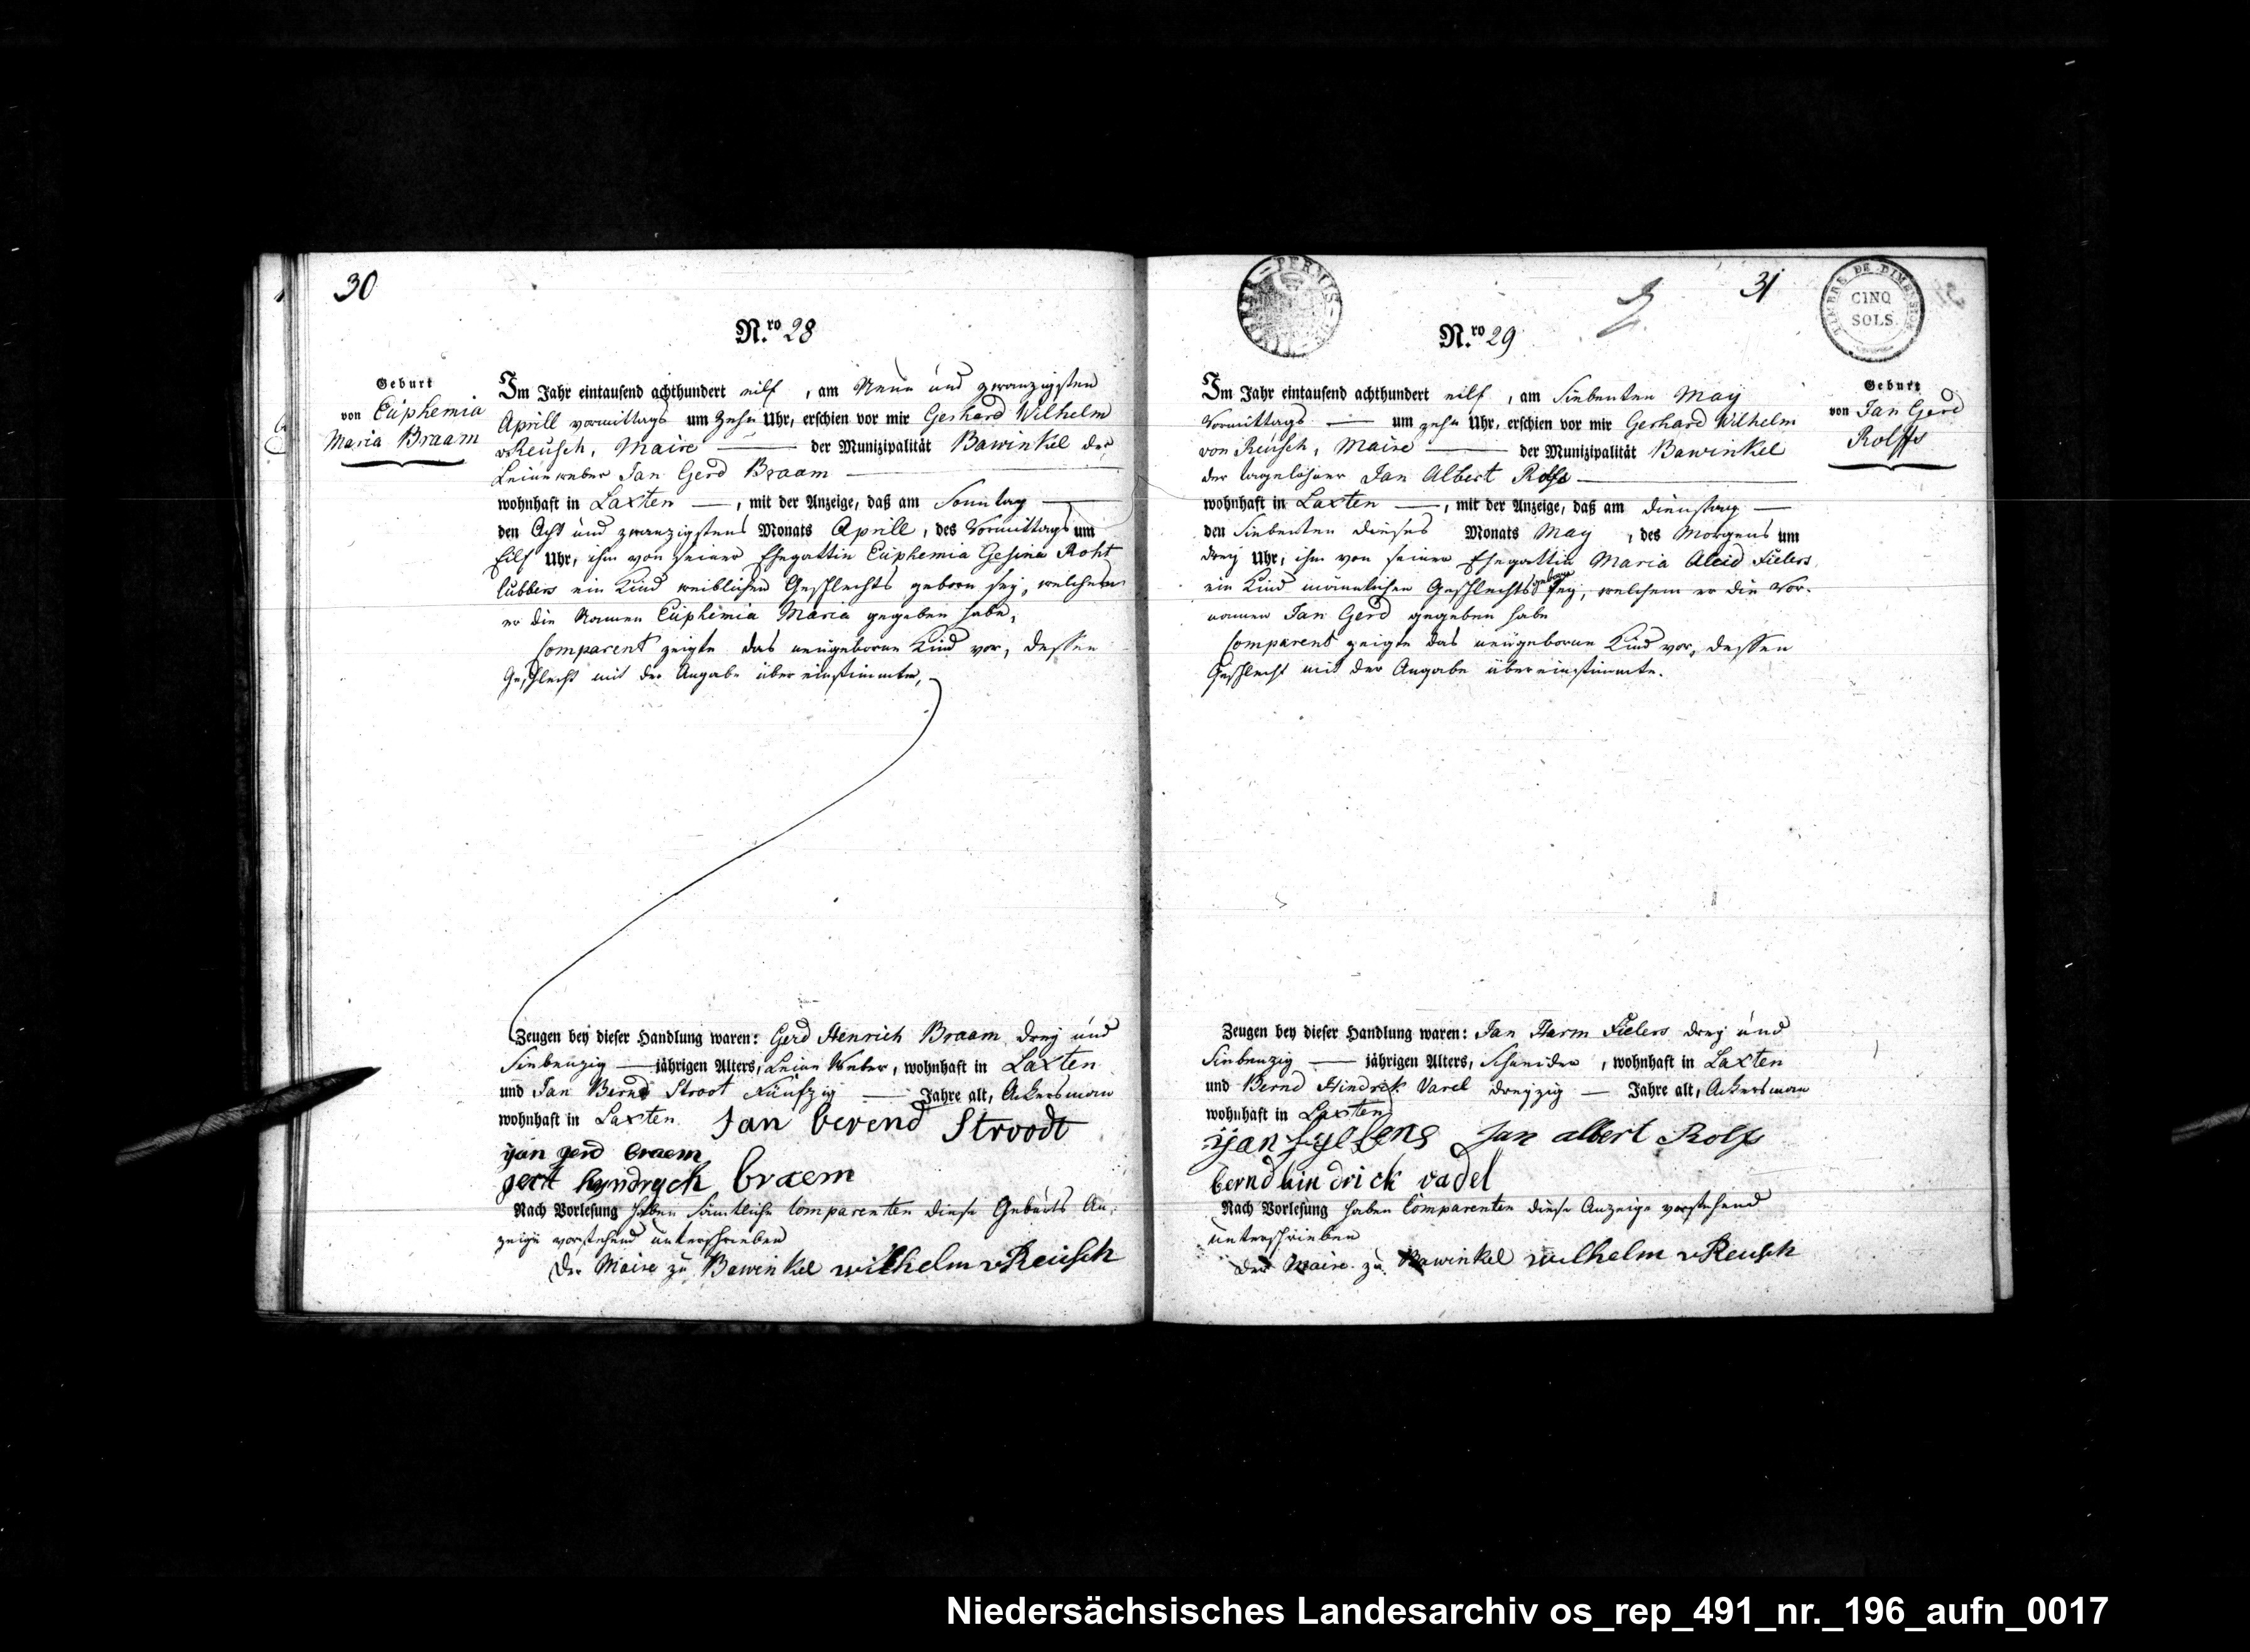 30
N.ro 28
Geburt
von Euphemia
Maria Braam
Im Jahr eintausend achthundert eilf, am Neun und zwanzigsten
Aprill vormittags um Zehn Uhr, erschien vor mir Gerhard Wilhelm
v Reusch, Maire — der Munizipalität Bawinkel der
Leineweber Jan Gerd Braam —
wohnhaft in Laxten —, mit der Anzeige, daß am Sonntag —
den Acht und zwanzigsten Monats Aprill, des Vormittags um
Eilf Uhr, ihm von seiner Ehegattin Euphemia Gesina Roht
lubbers ein Kind weiblichen Geschlechts geborn sey, welchem
er die Namen Euphemia Maria gegeben habe,
Comparent zeigte das neugeborne Kind vor, dessen
Geschlecht mit der Angabe übereinstimmte,
Zeugen bey dieser Handlung waren: Gerd Henrich Braam drey und
Siebenzig — jährigen Alters, Leine Weber, wohnhaft in Laxten
und Jan Bernd Stroot Fünfzig — Jahre alt, Ackersman
wohnhaft in Laxten Jan berend Stroodt
yan gerd braem
gert hyndryck braem
Nach Vorlesung haben sämtliche Comparenten diese Geburts An-
zeige vorstehend unterschrieben
Der Maire zu Bawinkel wilhelm v Reusch
TIMBRE DE DIMENSION
CINQ
SOLS.
31
N.ro 29
Geburt
von Jan Gerd
Rolffs
Im Jahr eintausend achthundert eilf, am Siebenten May
Vormittags — um zehn Uhr, erschien vor mir Gerhard Wilhelm
von Reusch, Maire — der Munizipalität Bawinkel
der tagelöhner Jan Albert Rolfs —
wohnhaft in Laxten —, mit der Anzeige, daß am dienstag —
den Siebenten dieses Monats May, des Morgens um
drey Uhr, ihm von seiner Ehegattin Maria Aleid Fielers
ein Kind männlichen Geschlechts geborn sey, welchem er die Vor-
namen Jan Gerd gegeben habe
Comparent zeigte das neugeborne Kind vor, dessen
Geschlecht mit der Angabe übereinstimmte.
Zeugen bey dieser Handlung waren: Jan Harm Fielers drey und
Siebenzig — jährigen Alters, Schneider, wohnhaft in Laxten
und Bernd Hindrik Varel dreyzig — Jahre alt, Ackersman
wohnhaft in Laxten
Jan albert Rolfs
bernd hin drick vadel
Nach Vorlesung haben Comparenten diese Anzeige vorstehend
unterschrieben
Der Maire zu Bawinkel wilhelm v Reusch
Niedersächsisches Landesarchiv os_rep_491_nr._196_aufn_0017